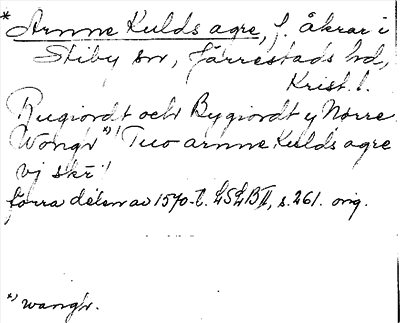 * Arnne Kulds agre, f. åkrar i
Stiby sn, Järrestads hd,
Krist. l.
Rugiordt och Bygiordt y Nörre
Wongr *) "Tuo arnne Kulds agre
vj skr̄"
förra delen av 1570-t. LSLB II, s. 261. orig.
*) wangr.